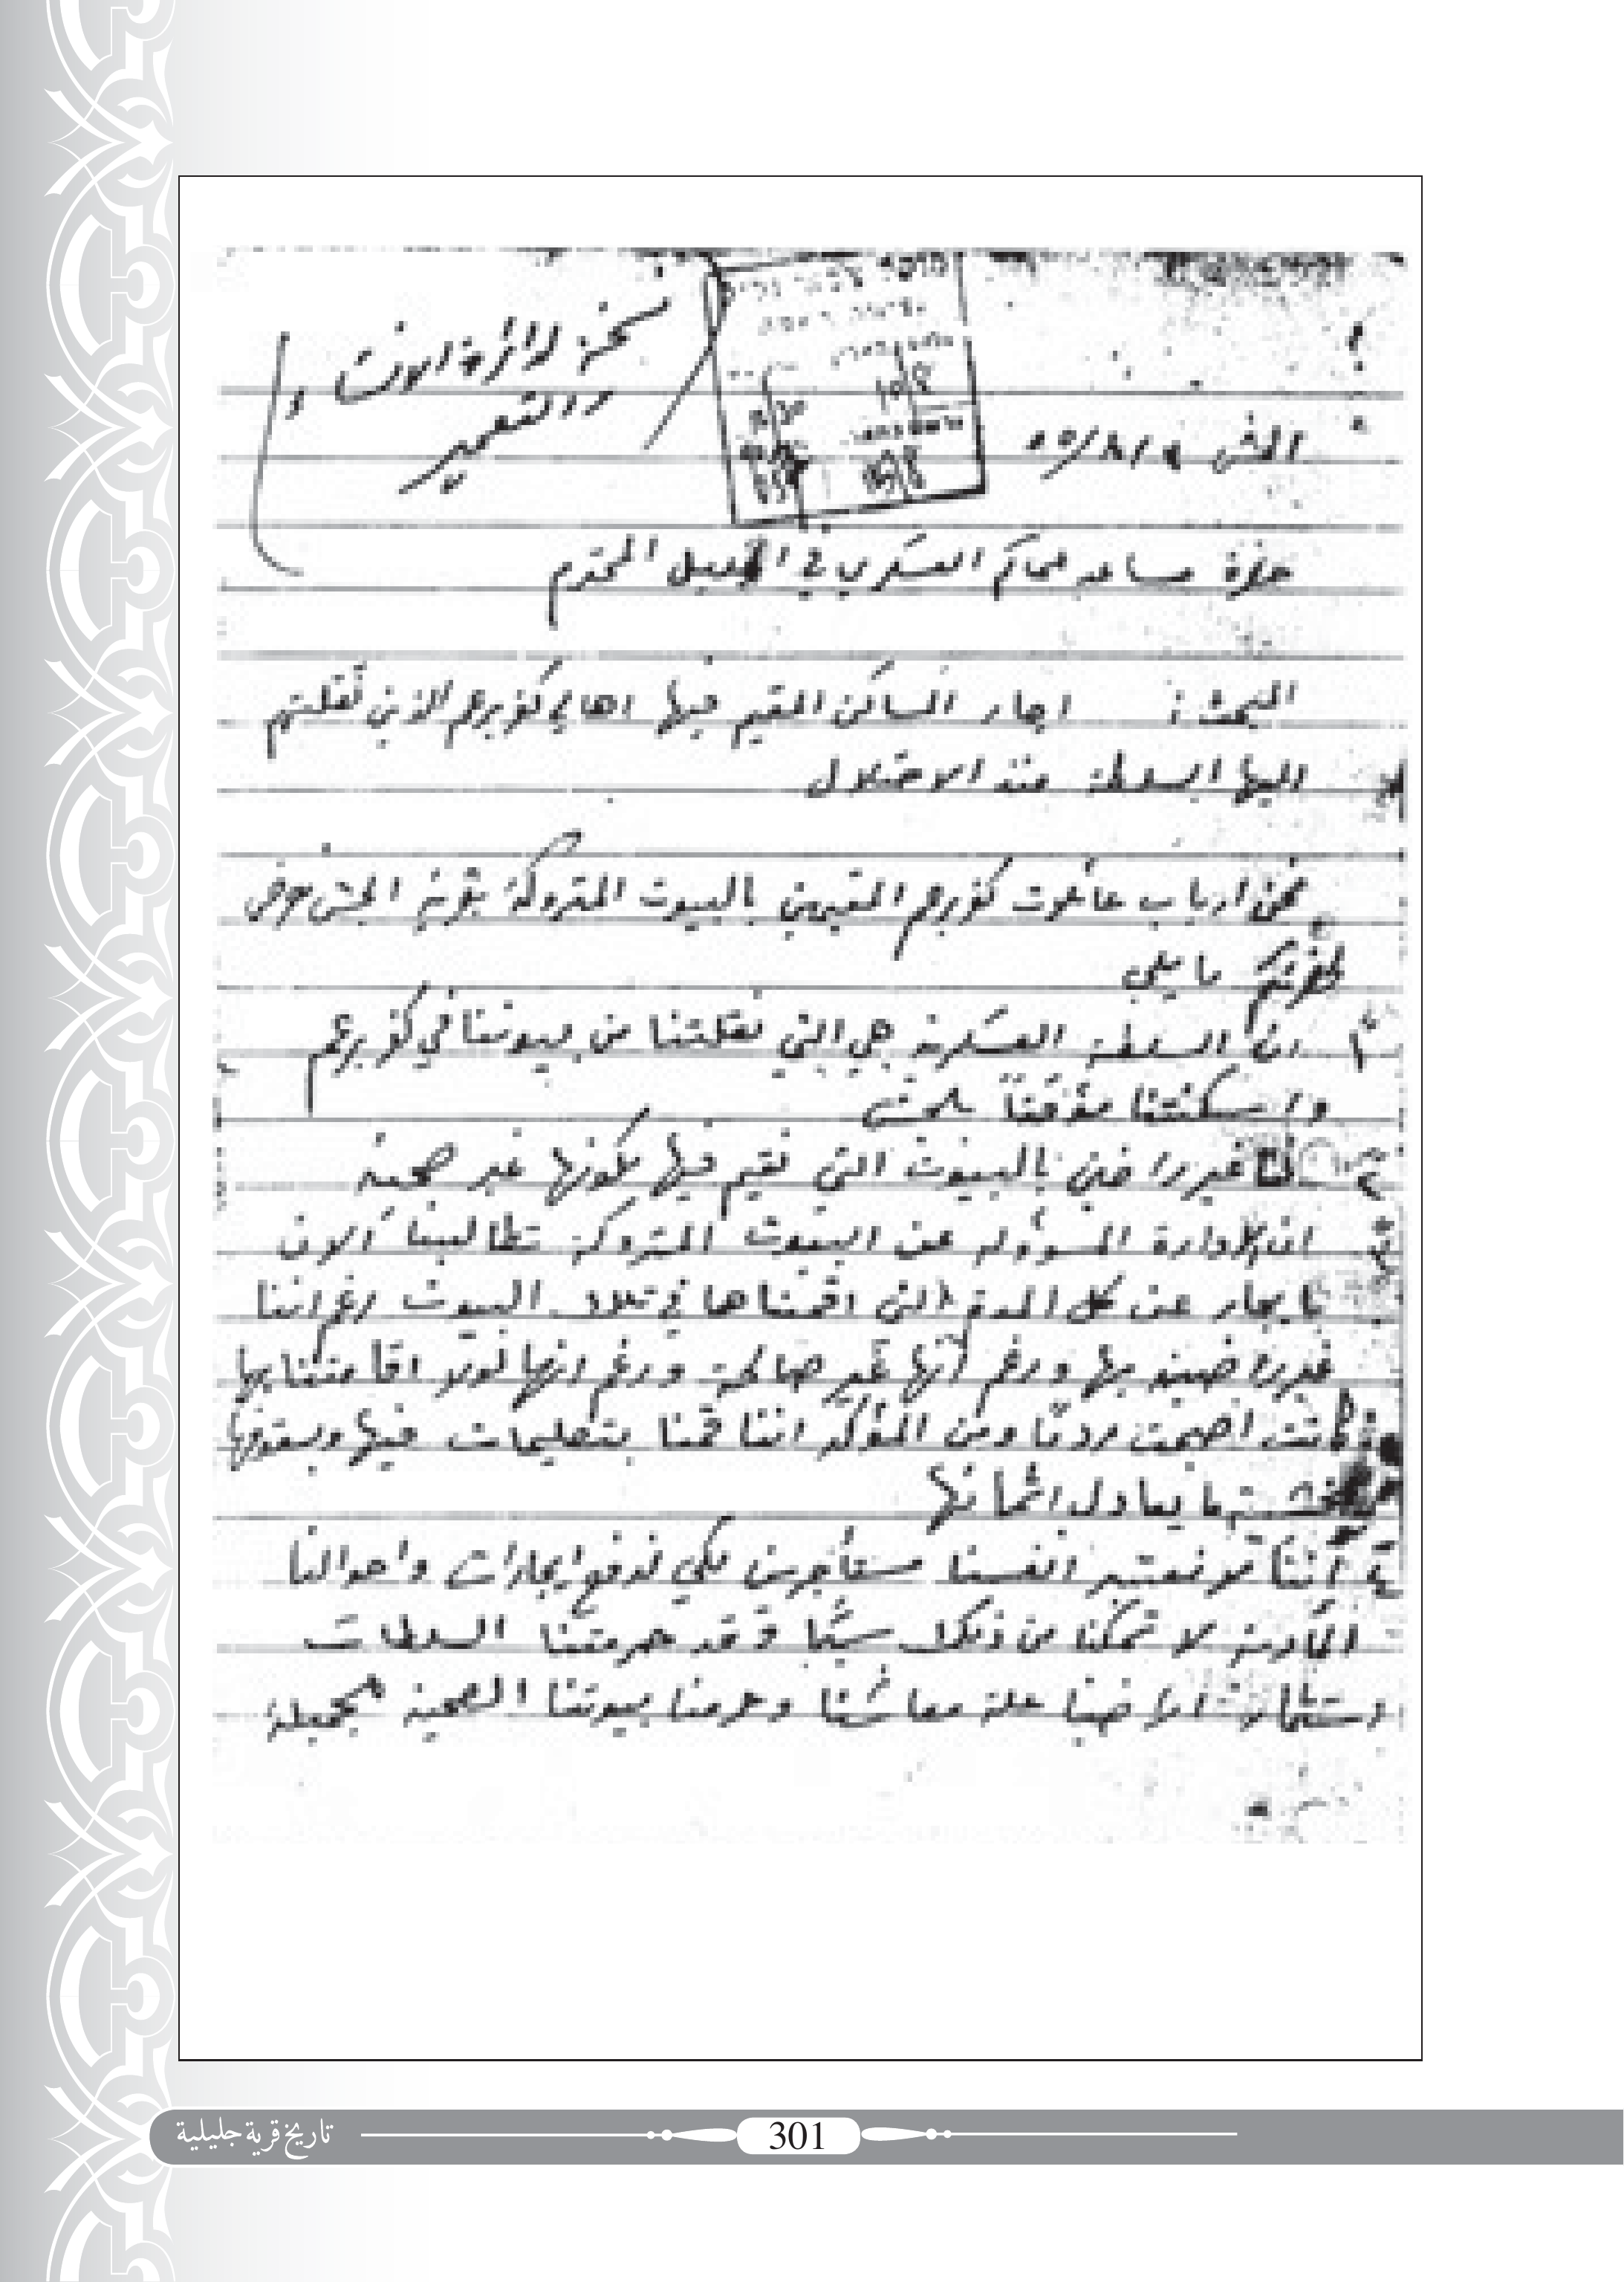 نسخة لدائرة الانشاء
والتعمير
الجش
حضرة مساعد حاكم العسكري في الجليل المحترم
البحث : ايجار المساكن المقيم فيها اهالي كفر برعم الذين نقلتهم
اليها السلطة منذ الاحتلال
نحن ارباب عائلات كفر برعم المقيمين بالبيوت المتروكة بقرية الجش نعرض
لحضرتكم ما يلي
١ ان السلطة العسكرية هي التي نقلتنا من بيوتنا في كفر برعم
واسكنتنا مؤقتاً بالجش
٢ لسنا غير راضين بالبيوت التي نقيم فيها لكونها غير صحية
٣ ان الادارة المسؤوله عن البيوت المتروكة تطالبنا الان
بايجار عن كل المدة التي اقمناها في تلك البيوت رغم اننا
غير راضين بها ورغم أنها غير صالحة ورغم انها لولا اقامتنا بها
لكانت اصبحت ردماً ومن المؤكد اننا قمنا بتصليحات فيها وبعضها
ما يعادل اثمانها
٤ أننا لا نعتبر انفسنا مستأجرين لكي ندفع ايجارات واحوالنا
المادية لا تمكنا من ذلك شيئا وقد حرمتنا السلطات
استثمار اراضينا علة معاشنا وحرمنا بيوتنا الصحية الجميلة
تاريخ قرية جليلية
301